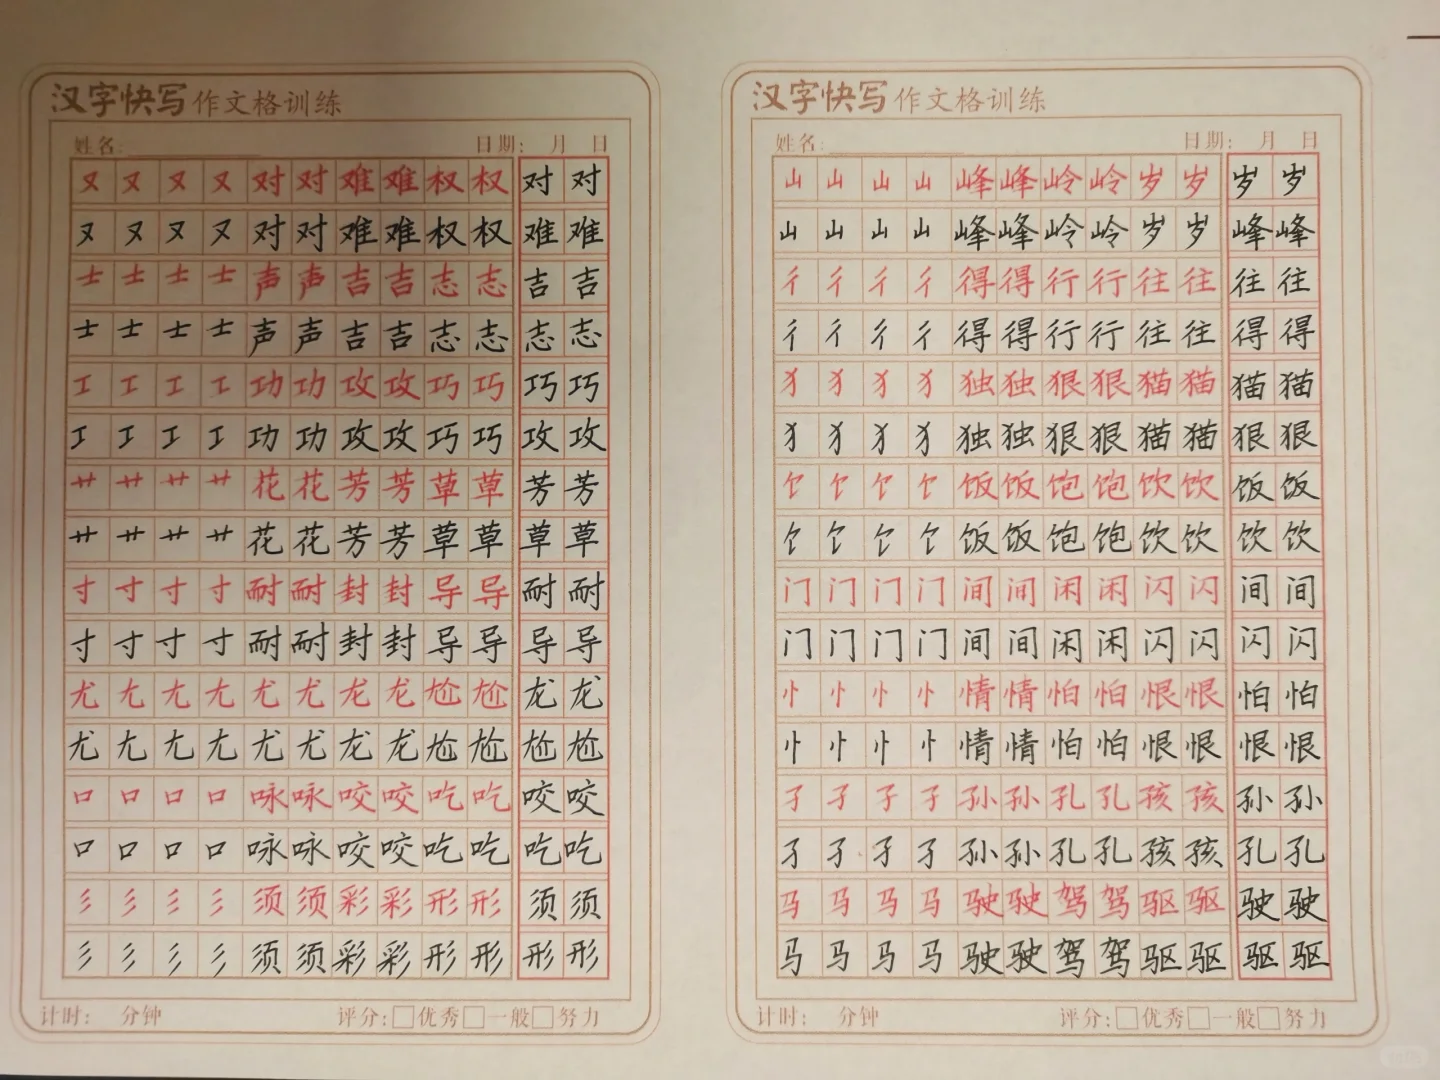 汉字快写 作文格训练
姓名: 日期: 月 日
又 又 又 又 对 对 难 难 权 权 对 对
又 又 又 又 对 对 难 难 权 权 难 难
士 士 士 士 声 声 吉 吉 志 志 吉 吉
士 士 士 士 声 声 吉 吉 志 志 志 志
工 工 工 工 功 功 攻 攻 巧 巧 巧 巧
工 工 工 工 功 功 攻 攻 巧 巧 攻 攻
艹 艹 艹 艹 花 花 芳 芳 草 草 芳 芳
艹 艹 艹 艹 花 花 芳 芳 草 草 草 草
寸 寸 寸 寸 耐 耐 封 封 导 导 耐 耐
寸 寸 寸 寸 耐 耐 封 封 导 导 导 导
尤 尢 尢 尢 尤 尤 龙 龙 尬 尬 龙 龙
尤 尢 尢 尢 尤 尤 龙 龙 尬 尬 尬 尬
口 口 口 口 咏 咏 咬 咬 吃 吃 咬 咬
口 口 口 口 咏 咏 咬 咬 吃 吃 吃 吃
彡 彡 彡 彡 须 须 彩 彩 形 形 须 须
彡 彡 彡 彡 须 须 彩 彩 形 形 形 形
计时: 分钟 评分:□优秀□一般□努力
汉字快写 作文格训练
姓名: 日期: 月 日
山 山 山 山 峰 峰 岭 岭 岁 岁 岁 岁
山 山 山 山 峰 峰 岭 岭 岁 岁 峰 峰
彳 彳 彳 彳 得 得 行 行 往 往 往 往
彳 彳 彳 彳 得 得 行 行 往 往 得 得
犭 犭 犭 犭 独 独 狠 狠 猫 猫 猫 猫
犭 犭 犭 犭 独 独 狠 狠 猫 猫 狠 狠
饣 饣 饣 饣 饭 饭 饱 饱 饮 饮 饭 饭
饣 饣 饣 饣 饭 饭 饱 饱 饮 饮 饮 饮
门 门 门 门 间 间 闲 闲 闪 闪 间 间
门 门 门 门 间 间 闲 闲 闪 闪 闪 闪
忄 忄 忄 忄 情 情 怕 怕 恨 恨 怕 怕
忄 忄 忄 忄 情 情 怕 怕 恨 恨 恨 恨
孑 孑 孑 孑 孙 孙 孔 孔 孩 孩 孙 孙
孑 孑 孑 孑 孙 孙 孔 孔 孩 孩 孔 孔
马 马 马 马 驶 驶 驾 驾 驱 驱 驶 驶
马 马 马 马 驶 驶 驾 驾 驱 驱 驱 驱
计时: 分钟 评分:□优秀□一般□努力